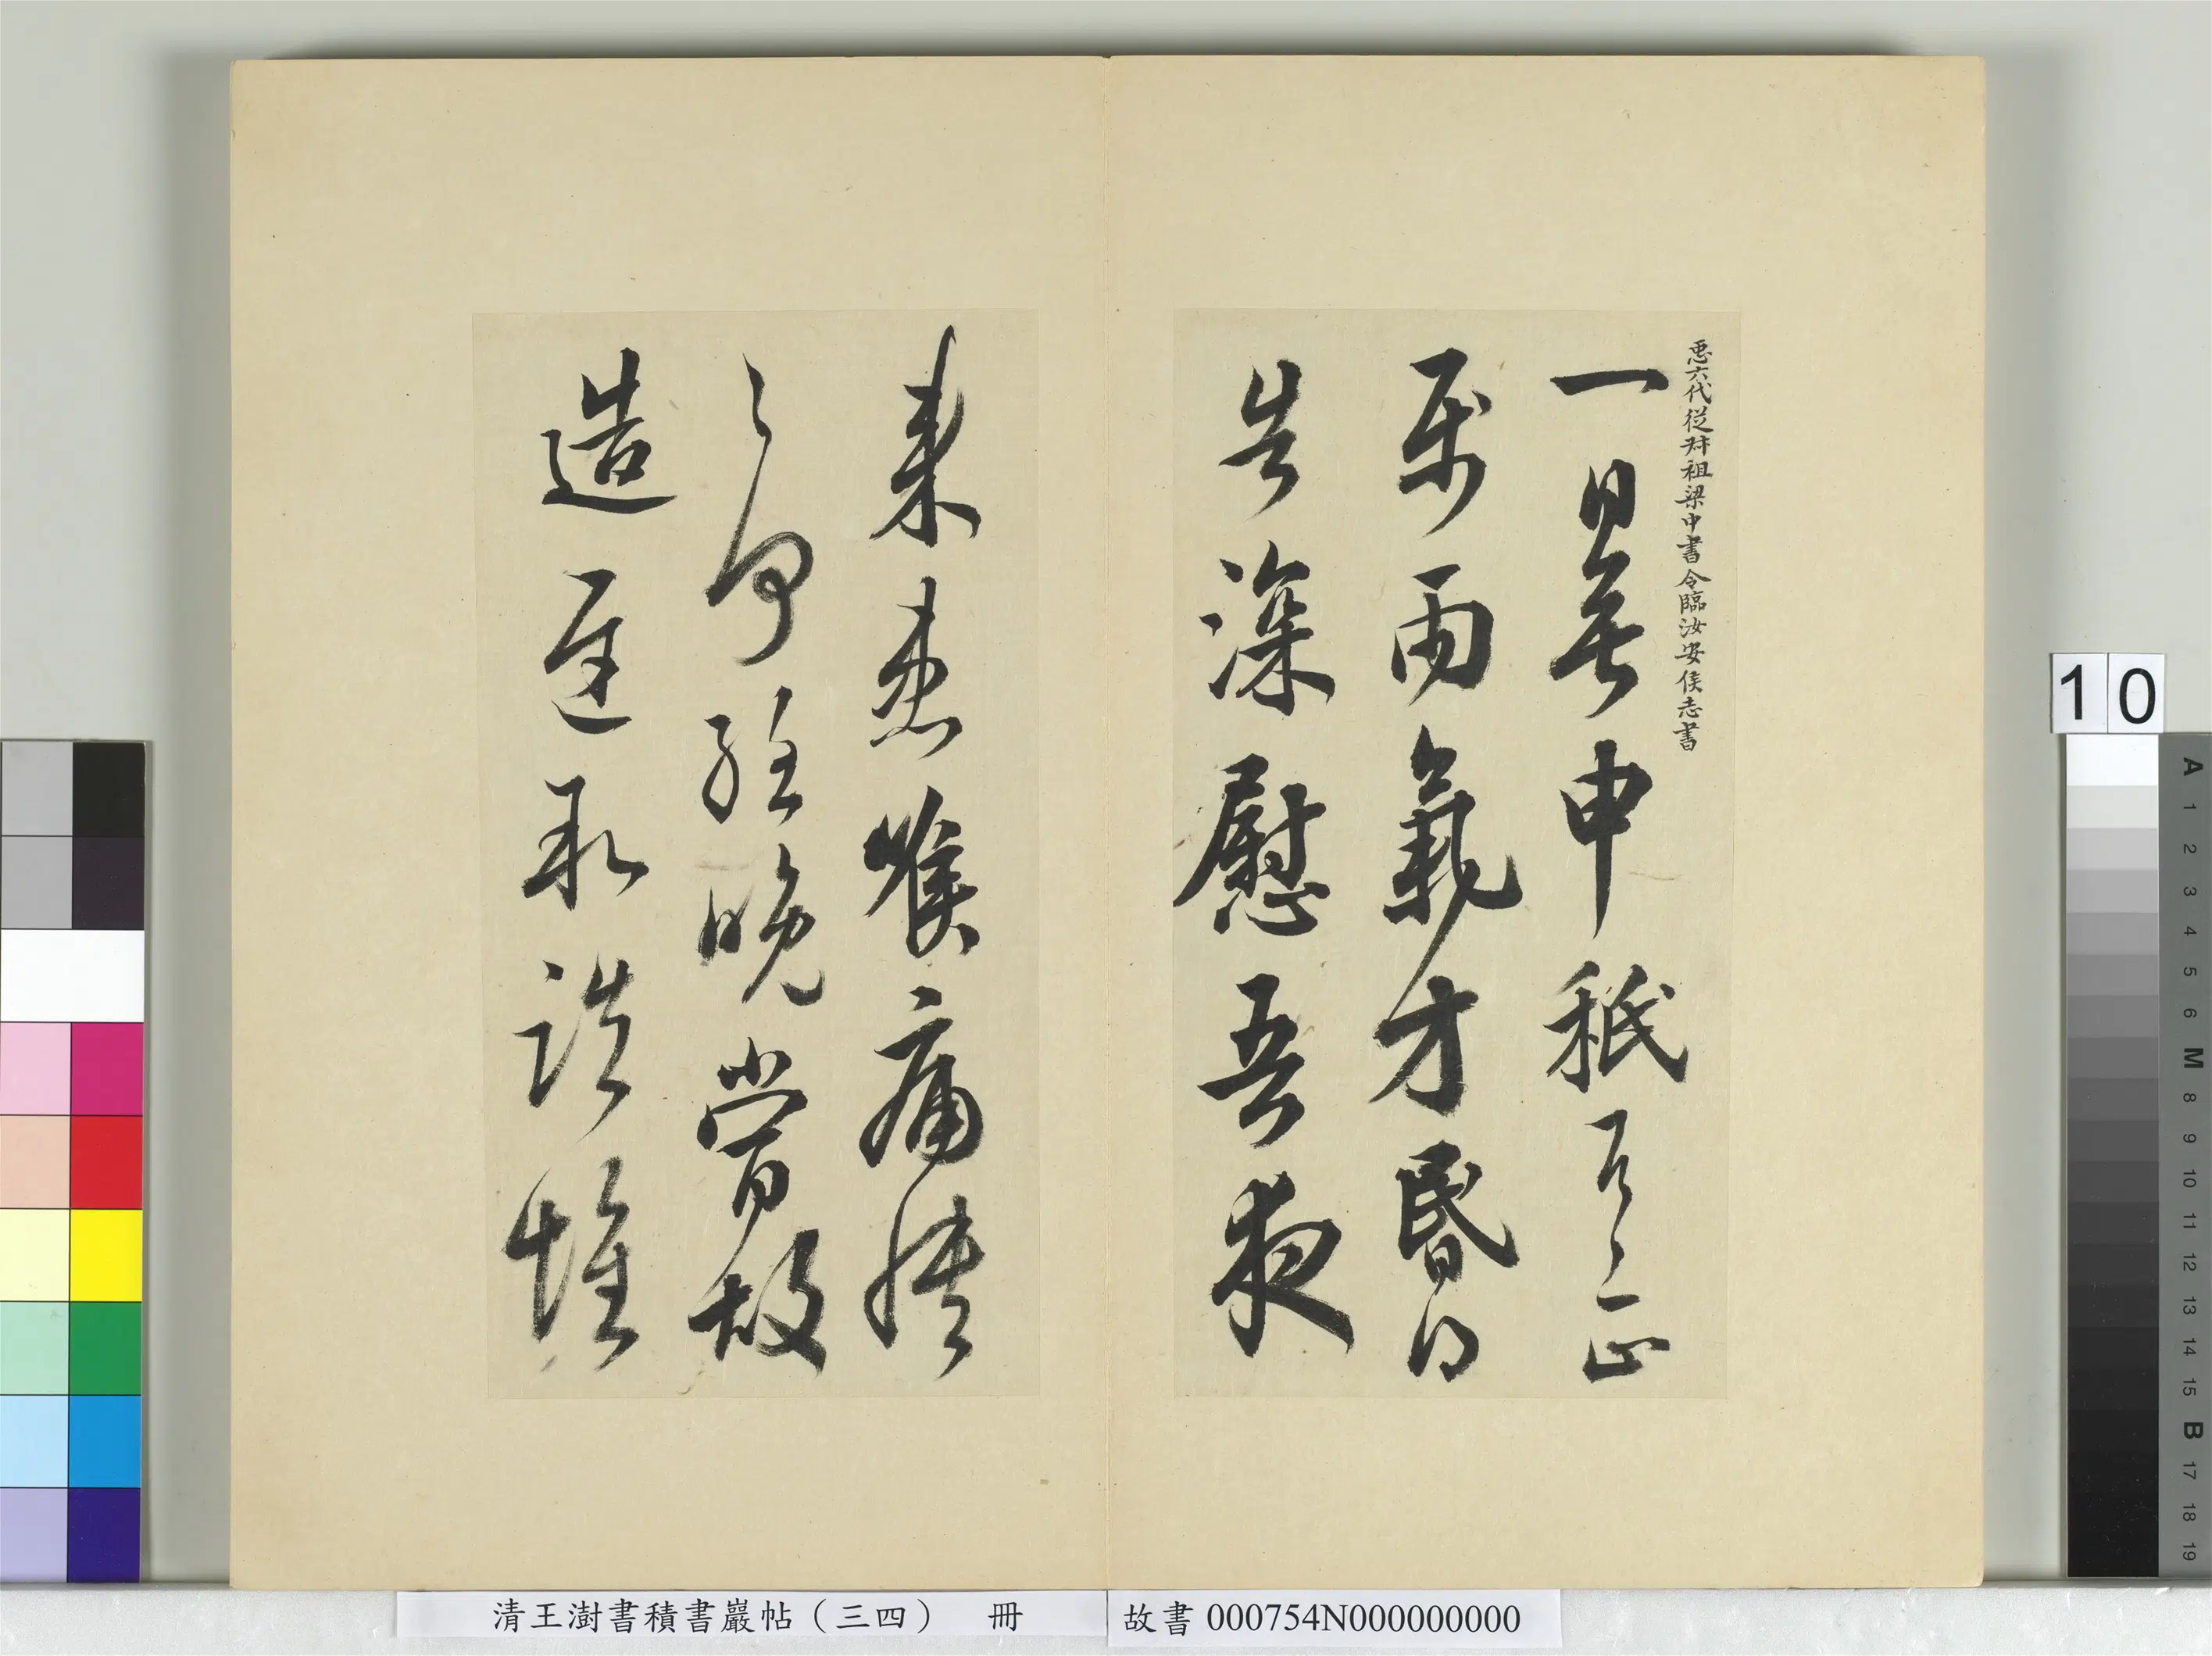 𢘑六代從叔祖梁中書令臨汝安侯志書
一日無申秖正
屬雨氣方昏得
告深慰吾夜
來患喉痛憒
々何強晚當故
造遲敘諸惟
10
A 1 2 3 4 5 6 M 8 9 10 11 12 13 14 15 B 17 18 19
清王澍書積書巖帖（三四） 冊
故書 000754N000000000